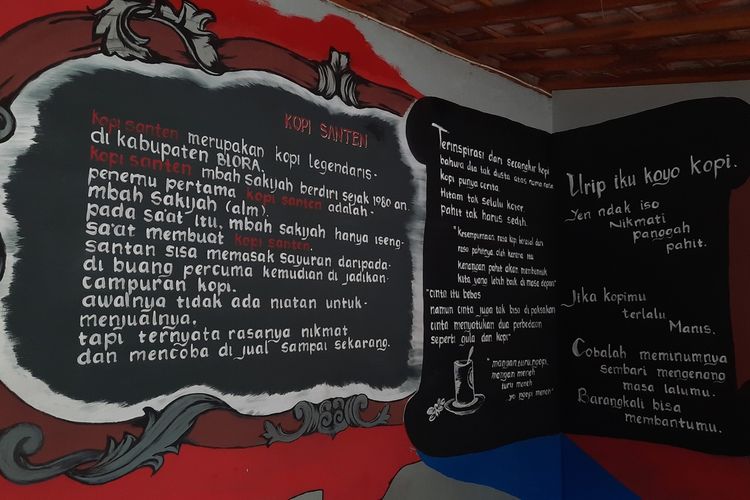 KOPI SANTEN
Kopi santen merupakan kopi legendaris-
di kabupaten BLORA.
Kopi santen mbah sakijah berdiri sejak 1980 an.
penemu pertama kopi santen adalah-
mbah sakijah (alm).
pada sa'at itu, mbah sakijah hanya iseng-
sa'at membuat kopi santen.
santan sisa memasak sayuran daripada-
di buang percuma kemudian di jadikan-
campuran kopi.
awalnya tidak ada niatan untuk-
menjualnya.
tapi ternyata rasanya nikmat
dan mencoba di jual sampai sekarang.
Terinspirasi dari secangkir kopi
bahwa dia tak dusta atas nama rasa
kopi punya cerita
Hitam tak selalu kotor
pahit tak harus sedih.
"kesempurnaan rasa kopi berasal dari
rasa pahitnya oleh karena itu
kenangan pahit akan membentuk
kita yang lebih baik di masa depan"
"cinta itu bebas
namun cinta juga tak bisa di paksakan
cinta menyatukan dua perbedaan
seperti gula dan kopi"
"mangan turu ngopi
mangan meneh
turu meneh
yo ngopi meneh"
Urip iku koyo kopi.
Yen ndak iso
Nikmati
panggah
pahit.
Jika kopimu
terlalu
Manis.
Cobalah meminumnya
sembari mengenang
masa lalumu.
Barangkali bisa
membantumu.